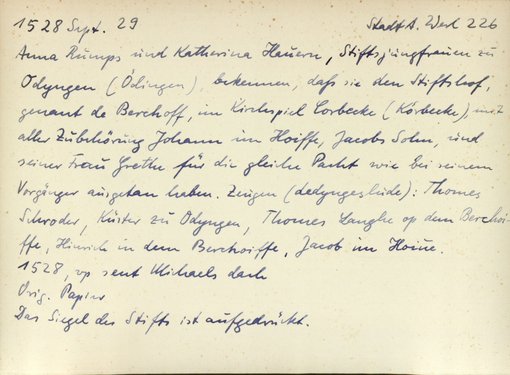 1528 Sept. 29 Stadt A. Werl 226
Anna Rumps und Katherina Hauern, Stiftsjungfrauen zu
Odyngen (Ödingen), bekennen, dass sie den Stiftshof,
genant de Berchoff, im Kirchspiel Corbecke (Körbecke), mit
aller Zubehörung Johann im Hoiffe, Jacobs Sohn, und
seiner Frau Grethe für die gleiche Pacht wie bei seinem
Vorgänger ausgetan haben. Zeugen (dedyngeslude): Thomes
Schroder, Küster zu Odyngen, Thomes Langhe op dem Berchoi-
ffe, Hinrich in dem Berchoiffe, Jacob im Hoiue.
1528, vp sent Michaels dach
Orig. Papier
Das Siegel des Stifts ist aufgedrückt.